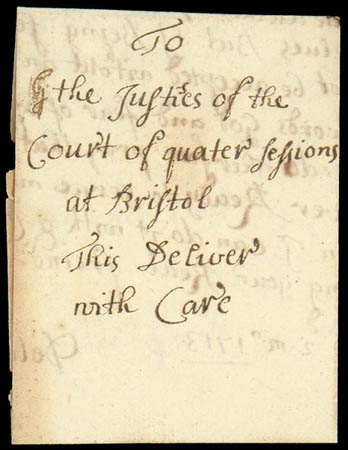 To
the Justies of the
Court of quater sessions
at Bristol
This Deliver
with Care